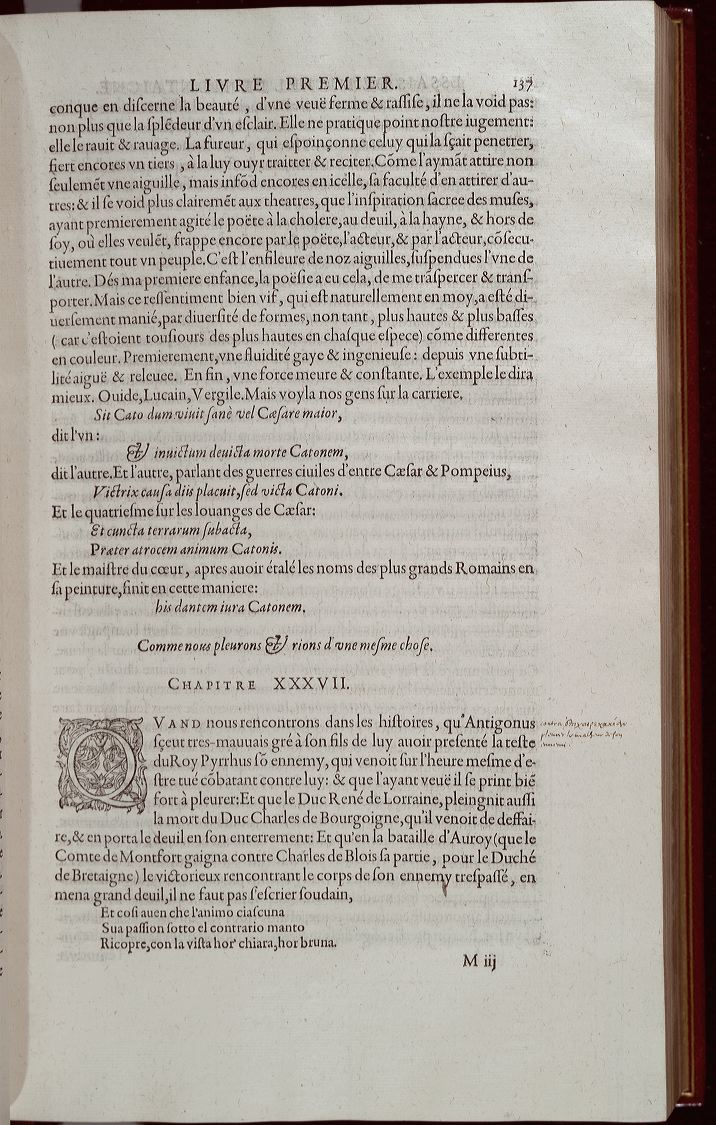 LIVRE PREMIER. 137
conque en diſcerne la beauté , d'vne veuë ferme & raſſiſe, il ne la void pas:
non plus que la ſplẽdeur d'vn eſclair. Elle ne pratique point noſtre iugement:
elle le rauit & rauage. La fureur, qui eſpoinçonne celuy qui la ſçait penetrer,
fiert encores vn tiers , à la luy ouyr traitter & reciter.Cõme l'aymãt attire non
ſeulemẽt vne aiguille , mais infõd encores en icelle, ſa faculté d'en attirer d'au-
tres: & il ſe void plus clairemẽt aux theatres, que l'inſpiration ſacree des muſes,
ayant premierement agité le poëte à la cholere, au deuil, à la hayne, & hors de
ſoy, où elles veulẽt, frappe encore par le poëte, l'acteur, & par l'acteur, cõſecu-
tiuement tout vn peuple.C'eſt l'enfileure de noz aiguilles, ſuſpendues l'vne de
l'autre. Dés ma premiere enfance, la poëſie a eu cela, de me trãſpercer & tranſ-
porter.Mais ce reſſentiment bien vif, qui eſt naturellement en moy, a eſté di-
uerſement manié, par diuerſité de formes, non tant , plus hautes & plus baſſes
( car c'eſtoient touſiours des plus hautes en chaſque eſpece) cõme differentes
en couleur. Premierement, vne fluidité gaye & ingenieuſe : depuis vne ſubti-
lité aiguë & releuee. En fin , vne force meure & conſtante. L'exemple le dira
mieux. Ouide, Lucain, Vergile.Mais voyla nos gens ſur la carriere.
Sit Cato dum viuit ſanè vel Cæſare maior,
dit l'vn:
& inuictum deuicta morte Catonem,
dit l'autre.Et l'autre, parlant des guerres ciuiles d'entre Cæſar & Pompeius,
Victrix cauſa diis placuit, ſed victa Catoni.
Et le quatrieſme ſur les louanges de Cæſar:
Et cuncta terrarum ſubacta,
Præter atrocem animum Catonis.
Et le maiſtre du cœur, apres auoir étalé les noms des plus grands Romains en
ſa peinture, finit en cette maniere:
his dantem iura Catonem.
Comme nous pleurons & rions d'vne meſme choſe.
CHAPITRE XXXVII.
QVAND nous rencontrons dans les hiſtoires, qu'Antigonus
ſçeut tres-mauuais gré à ſon fils de luy auoir preſenté la teſte
du Roy Pyrrhus ſõ ennemy, qui venoit ſur l'heure meſme d'e-
ſtre tué cõbatant contre luy: & que l'ayant veuë il ſe print biẽ
fort à pleurer:Et que le Duc René de Lorraine, pleingnit auſſi
la mort du Duc Charles de Bourgoigne, qu'il venoit de deffai-
re, & en porta le deuil en ſon enterrement: Et qu'en la bataille d'Auroy (que le
Comte de Montfort gaigna contre Charles de Blois ſa partie, pour le Duché
de Bretaigne) le victorieux rencontrant le corps de ſon ennemy treſpaſſé, en
mena grand deuil, il ne faut pas ſ'eſcrier ſoudain,
Et coſi auen che l'animo ciaſcuna
Sua paſſion ſotto el contrario manto
Ricopre, con la viſta hor' chiara, hor bruna.
M iij